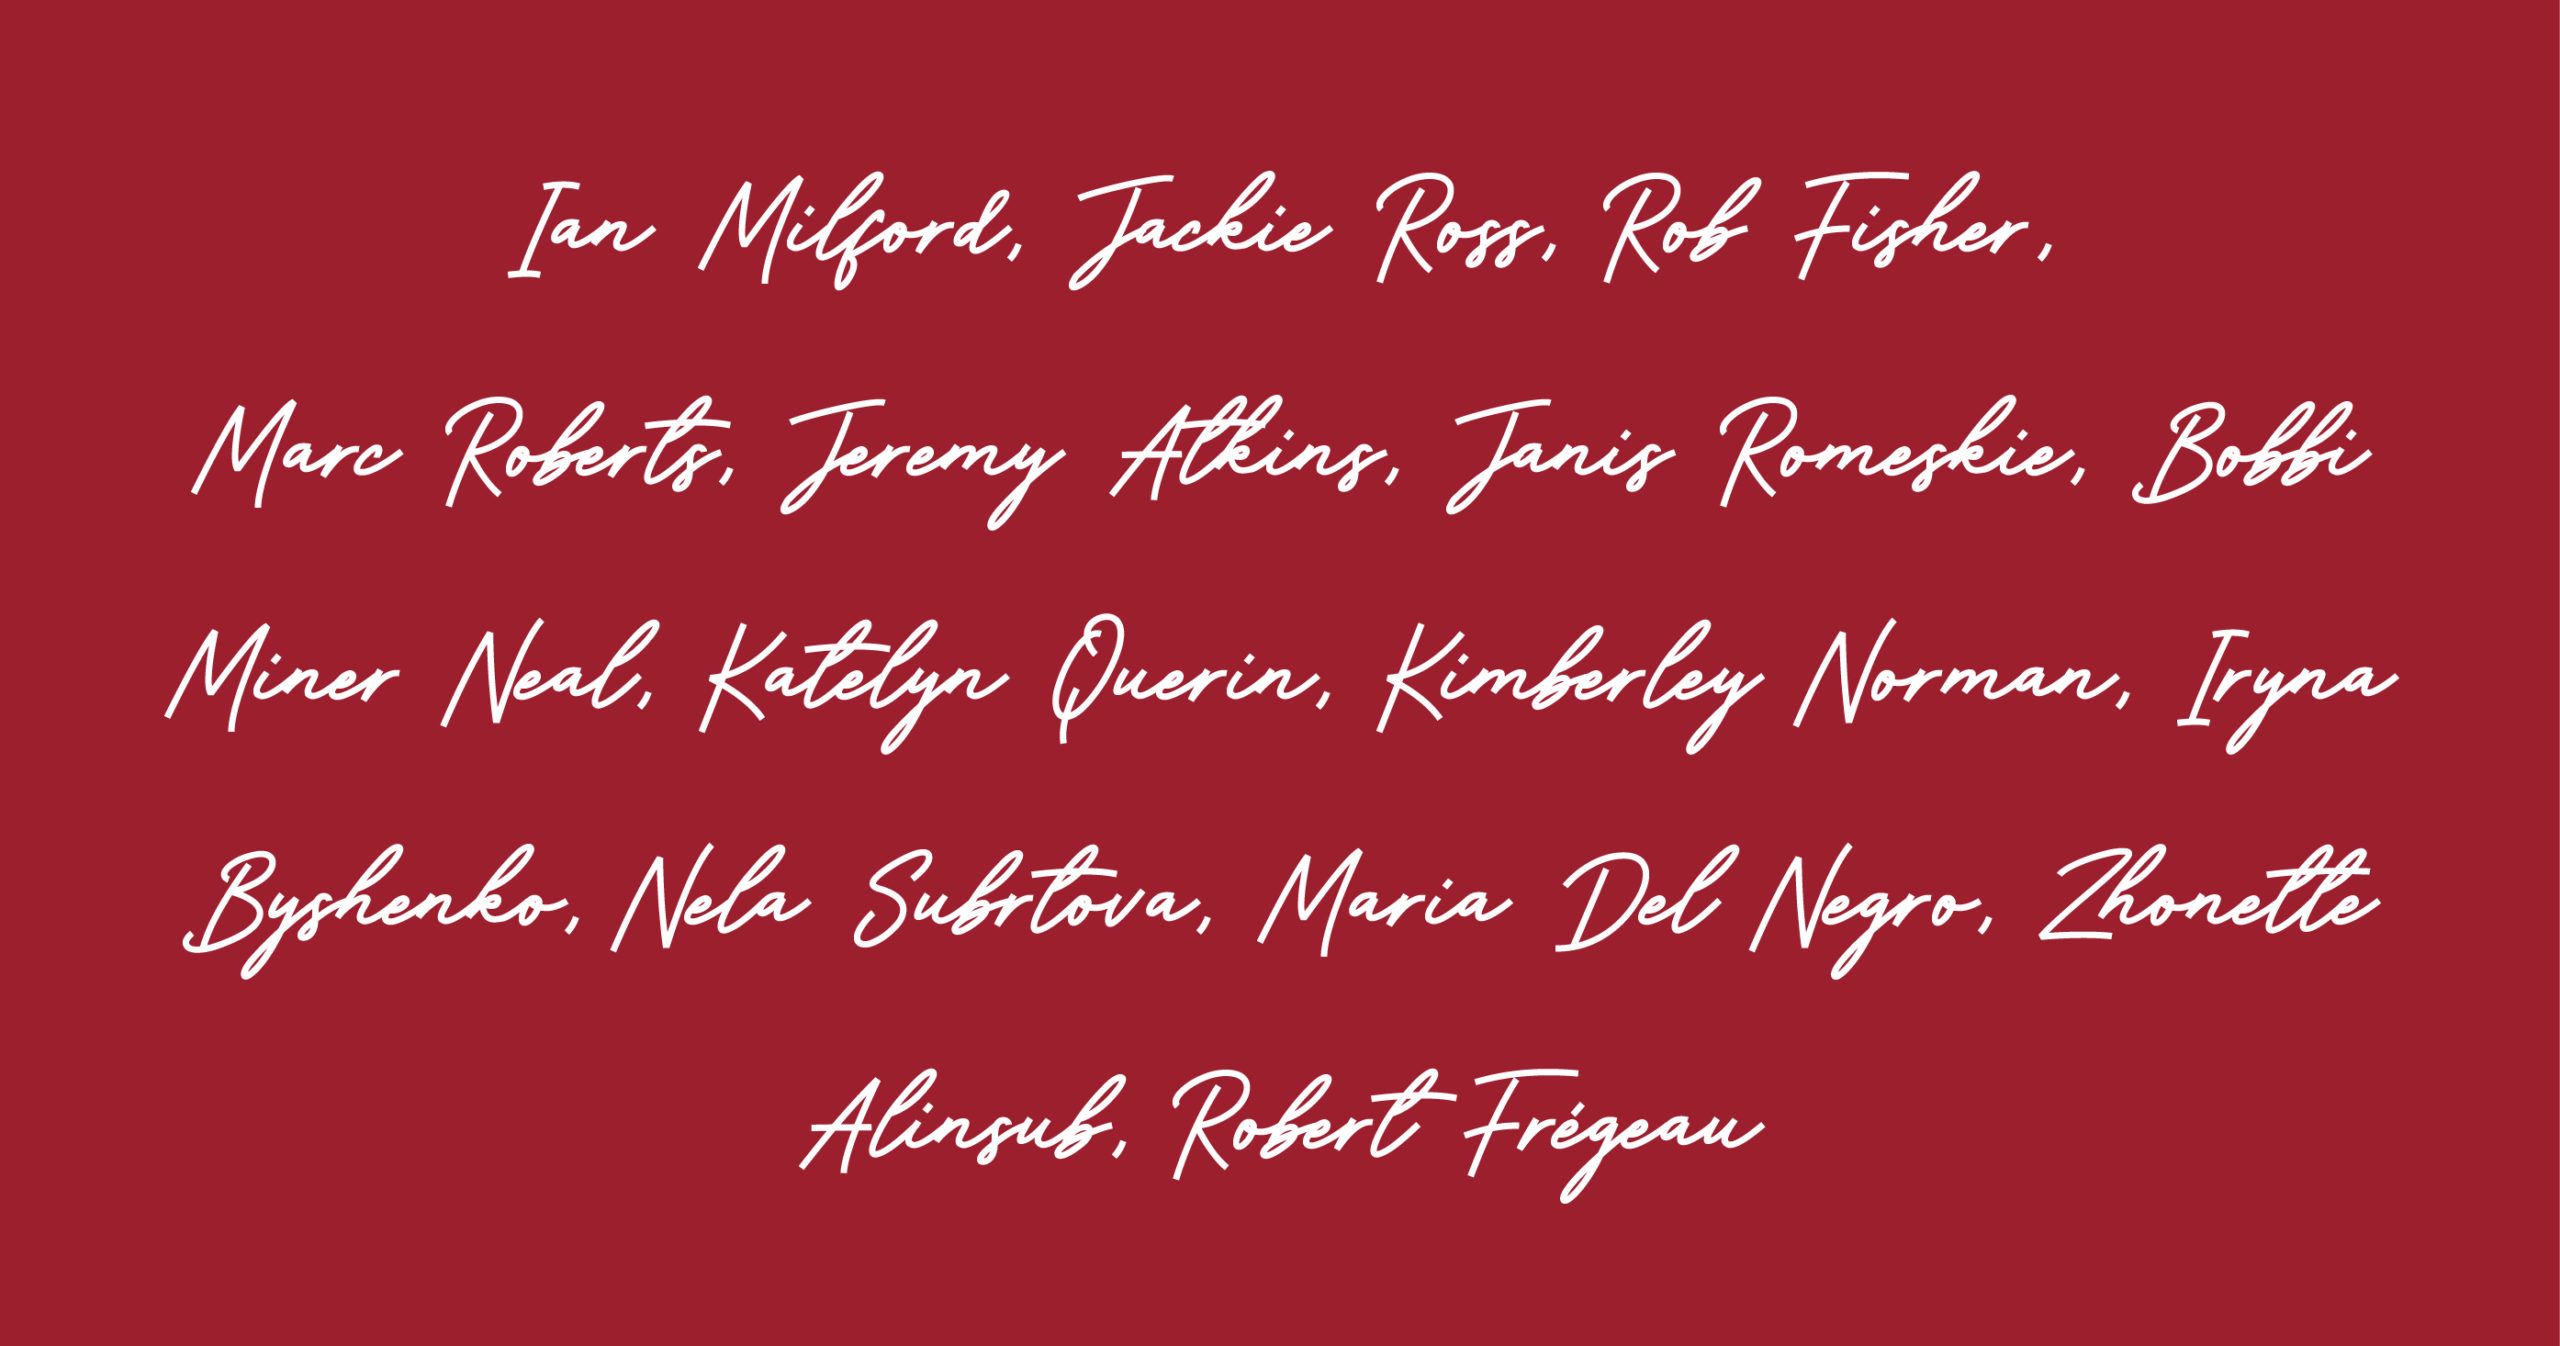 Ian Milford, Jackie Ross, Rob Fisher,
Marc Roberts, Jeremy Atkins, Janis Romeskie, Bobbi
Miner Neal, Katelyn Querin, Kimberley Norman, Iryna
Byshenko, Nela Subrtova, Maria Del Negro, Zhonette
Alinsub, Robert Frégeau